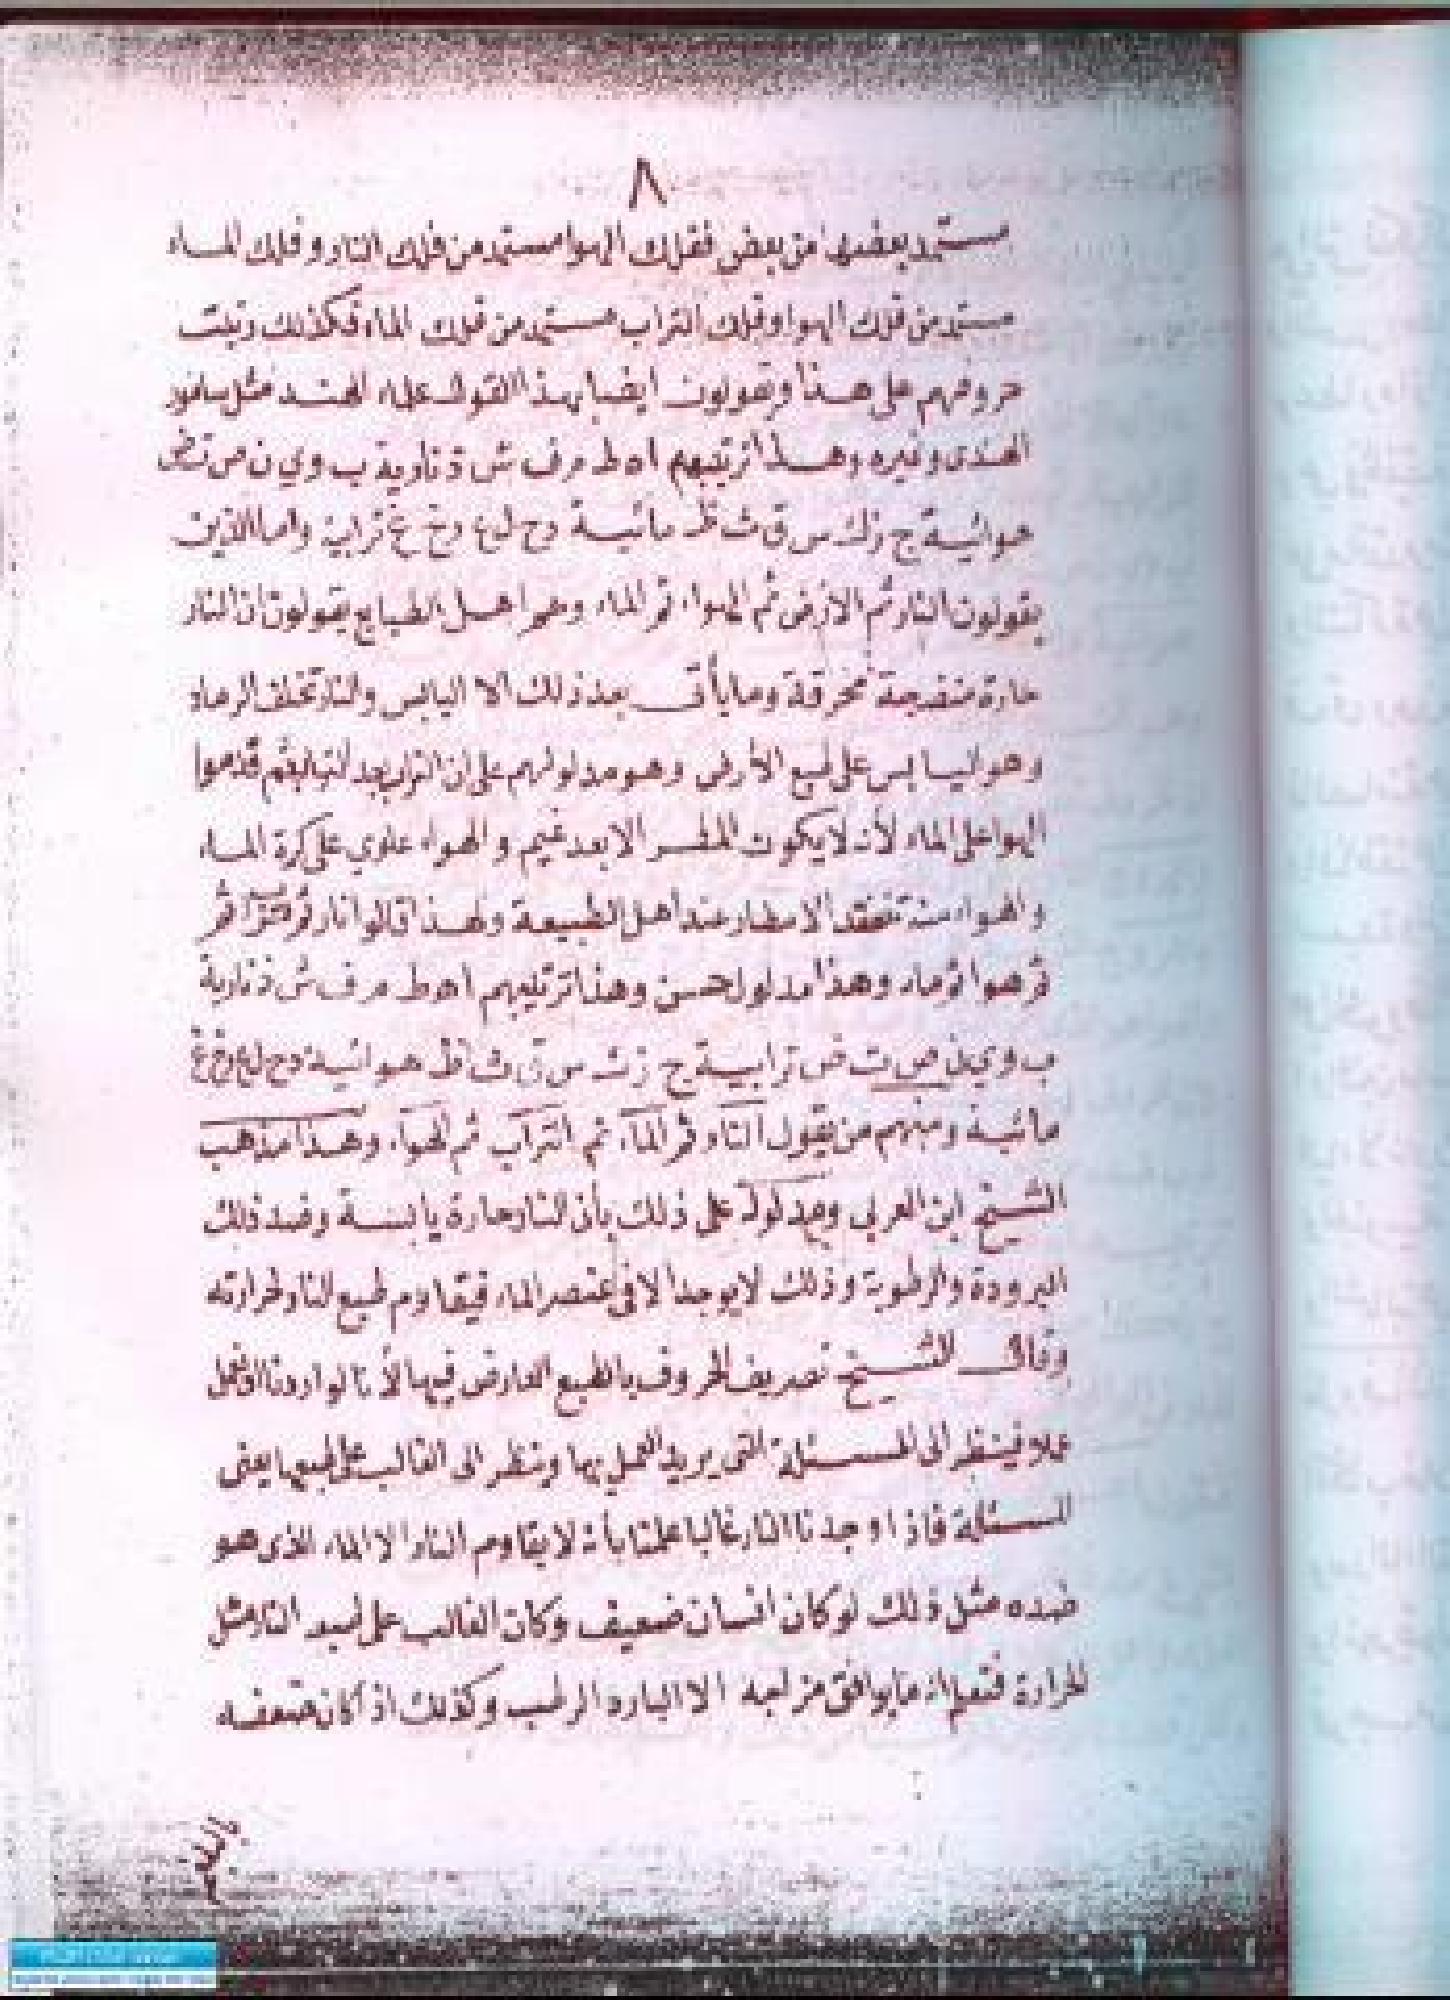 ٨
مستمد بعضها من بعض ففلك الهوا مستمد من فلك النار وفلك الماء
مستمد من فلك الهوا وفلك التراب مستمد من فلك الماء فكذلك رتبت
حروفهم على هذا ويقولون ايضا بهذا القول علماء الهند مثل سامور
الهندى وغيره وهذا ترتيبهم ا ه ط م ف ش ذ نارية ب و ي ن ص ت ض
هوائية ج ز ك س ق ث ظ مائية د ح ل ع ر خ غ ترابية واما الذين
يقولون النار ثم الارض ثم الهواء ثم الماء وهم اهل الطبايع يقولون ان النار
حارة محرقة وما يأتى بعد ذلك الا اليابس والنار تخلف الرماد
وهو اليابس على طبع الأرض وهو مدلولهم على ان التراب بعد قدموا
الهوا على الماء لأنه لا يكون المطر الا بعد غيم والهواء علوي على كرة الماء
والهواء منه تنعقد الامطار عند اهل الطبيعة ولهذا قالوا نار ثم
ثم هوا ثم ماء وهذا مدلول حسن وهذا ترتيبهم ا ه ط م ف ش ذ نارية
ب و ي ن ص ت ض ترابية ج ز ك س ق ث ظ هوائية د ح ل ع ر خ غ
مائية ومنهم من يقول النار ثم الماء ثم التراب ثم الهواء وهذا مذهب
الشيخ ابن العربي على ذلك بأن النار حارة يابسة وضد ذلك
البرودة والرطوبة وذلك لا يوجد الا في عنصر الماء فيقاوم طبع النار لحرارته
وقال الشيخ تصريف الحروف بالطبع العارض فيها لأنا لو اردنا ان نعمل
عملا فينظر الى المسئلة التى يريد العمل بها وننظر الى الغالب على طبعها يعنى
المسئلة فاذا وجدنا النار غالبا علمنا بأنه لا يقاوم النار الا الماء الذى هو
ضده مثل ذلك لو كان انسان ضعيف وكان الغالب على النار مثل
الحرارة فتعلم انه ما يوافق مزاجه الا البارد الرطب وكذلك اذا كان ضعفه